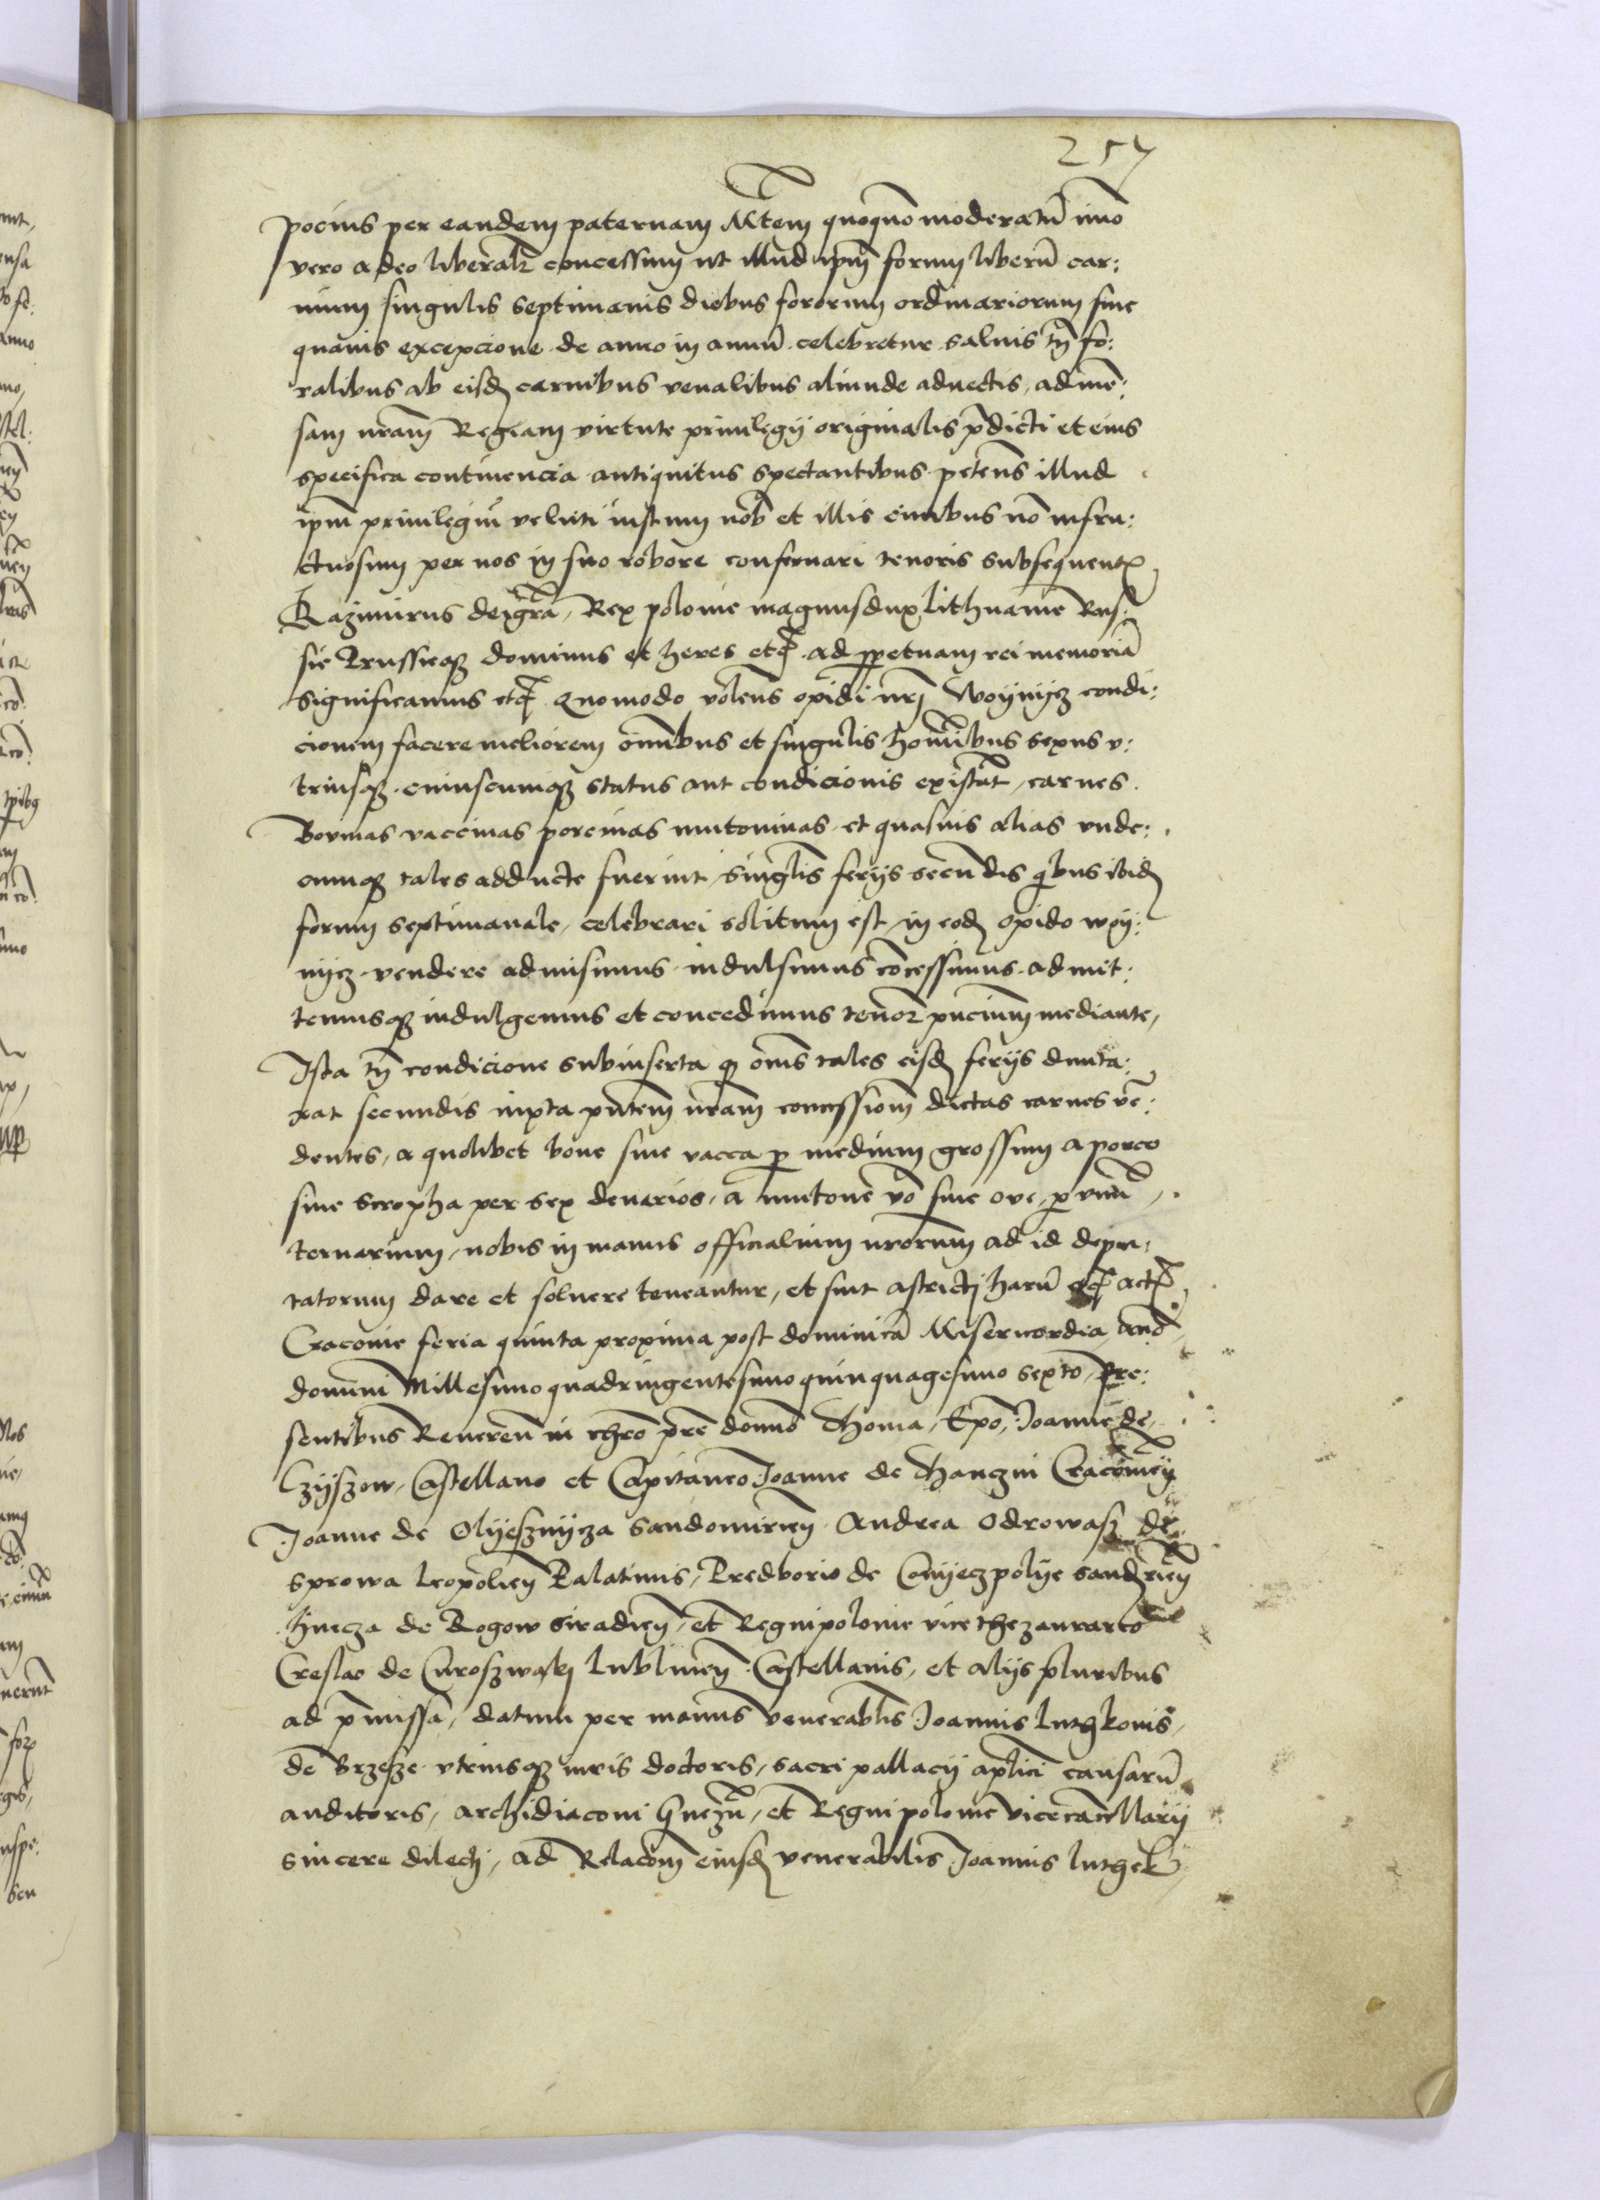 257
pocius per eandem paternam Mtem quoquo moderatu imo
vero adeo liberalr concessum ut illud ipm forum liberu car:
nium singulis septimanis diebus fororum ordinariorum sine
quavis excepcione de anno in annu celebretur salvis tn fo:
ralibus ab eisd carnibus venalibus aliunde advectis, ad me:
sam nram Regiam virtute privilegij originalis pdicti et eius
specifica continencia antiquitus spectantibus petens illud
ipm privilegiu veluti iustum nob et illis civibus no infru:
ctuosum per nos in suo robore conservari tenoris subsequent
Kazimirus dei gra, Rex polonie magnus dux Lithuanie Rus:
sie Prussieqz dominus et heres etc. ad ppetuam rei memoria
significamus etc. Quomodo volens opidi nri Woynijcz condi:
cionem facere meliorem omibus et singulis hominibus sexus v:
triusqz cuiuscumqz status aut condicionis existat, carnes
Bovinas vaccinas porcinas mutoninas et quasvis alias unde:
cumqz tales adducte fuerint, singlis ferijs secundis qbus ibid
forum septimanale, celebrari solitum est, in eod opido woy:
nijcz vendere admisimus indulsimus concessimus admit:
temusqz indulgemus et concedimus tenor pncium mediante,
Ista tn condicione subinserta q oms tales eisd ferijs dumta:
xat secundis iuxta pntem nram concessiom dictas carnes ve:
dentes, a quolibet bove sive vacca p medium grossum a porco
sive scropha per sex denarios, a mutone vo sive ove, p unu
ternarium, nobis in manus officialium nrorum ad id depu:
tatorum dare et solvere teneantur, et sint astricti haru etc act
Cracovie feria quinta proxima post dominica Misericordia, ano
domini Millesimo quadringentesimo quinquagesimo sexto, Pre:
sentibus Reveren in chro pre domno Thoma, Epo, Joanne de
Czijszow, Castellano et Capitaneo Joanne de Thanczin Cracovien
Joanne de Olijesznijcza Sandomirien Andrea Odrowasz de
sprowa Leopolien Palatinis, Predborio de Conijeczpolije sandzrien
hincza de Rogow siradien, et Regni polonie vice thezaurario
Creslao de Curoszwaki lublinen Castellanis, et alijs pluribus
ad pmissa, datum per manus venerablis Joannis lutgkonis,
de Brzesze utriusqz iuris doctoris, sacri pallacij aplici causaru
auditoris, archidiaconi Gnezn, et Regni polonie vicecancellarij
sincere dilecti, ad Relacom eiusd venerabilis Joannis lutgek